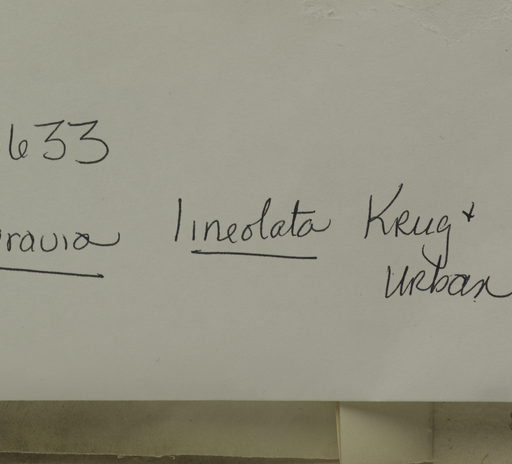 633
ravia lineolata Krug +
Urban